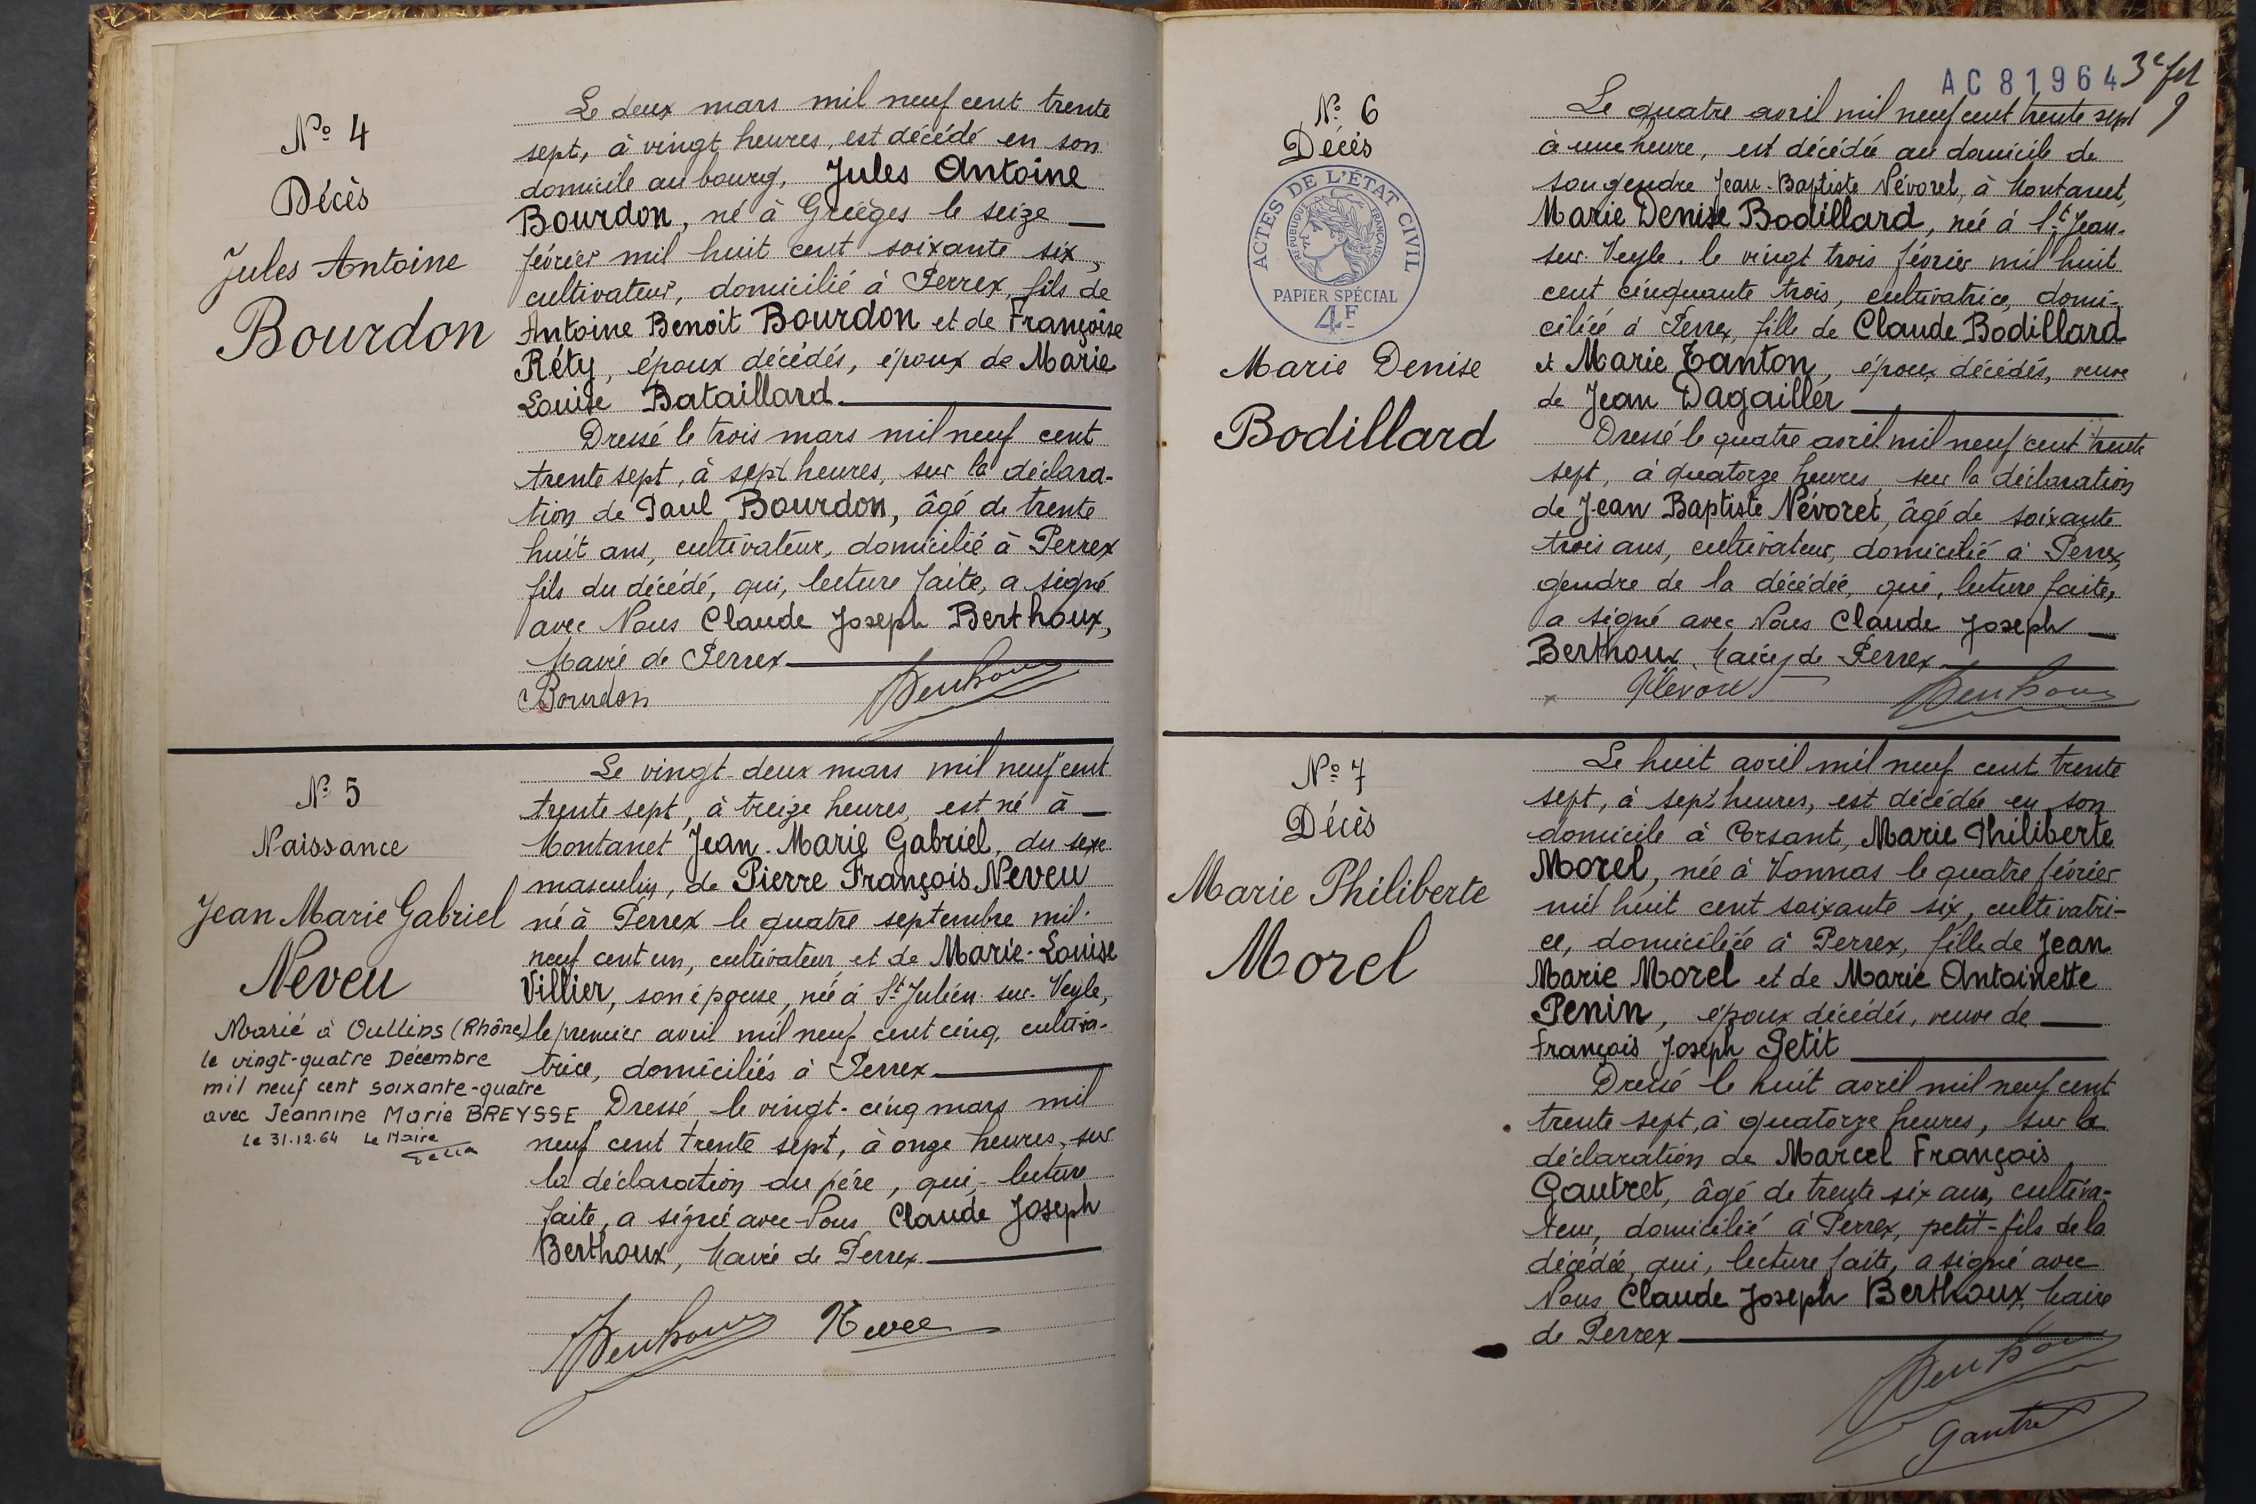 Nº 4
Décès
Jules Antoine
Bourdon
Le deux mars mil neuf cent trente
sept, à vingt heures, est décédé en son
domicile au bourg, Jules Antoine
Bourdon, né à Grièges le seize
février mil huit cent soixante six,
cultivateur, domicilié à Perrex, fils de
Antoine Benoit Bourdon et de Françoise
Réty, époux décédés, époux de Marie
Louise Bataillard
Dressé le trois mars mil neuf cent
trente sept, à sept heures, sur la déclara-
tion de Paul Bourdon, âgé de trente
huit ans, cultivateur, domicilié à Perrex
fils du décédé, qui, lecture faite, a signé
avec Nous Claude Joseph Berthoux,
Maire de Perrex
Bourdon Berthoux
Nº 5
Naissance
Jean Marie Gabriel
Neveu
Marié à Oullins (Rhône)
le vingt-quatre Décembre
mil neuf cent soixante-quatre
avec Jeannine Marie BREYSSE
Le 31.12.64 Le Maire
Le vingt-deux mars mil neuf cent
trente sept, à treize heures, est né à
Montanet Jean-Marie Gabriel, du sexe
masculin, de Pierre François Neveu
né à Perrex le quatre septembre mil
neuf cent un, cultivateur et de Marie-Louise
Villier, son épouse, née à St Julien-sur-Veyle,
le premier avril mil neuf cent cinq, cultiva-
trice, domiciliés à Perrex
Dressé le vingt-cinq mars mil
neuf cent trente sept, à onze heures, sur
la déclaration du père, qui, lecture
faite, a signé avec Nous Claude Joseph
Berthoux, Maire de Perrex
Berthoux Neveu
AC 81964
3e fet
9
Nº 6
Décès
ACTES DE L'ÉTAT CIVIL
RÉPUBLIQUE FRANÇAISE
PAPIER SPÉCIAL
4F
Marie Denise
Bodillard
Le quatre avril mil neuf cent trente sept
à une heure, est décédée au domicile de
son gendre Jean-Baptiste Névoret, à Montanet,
Marie Denise Bodillard, née à St Jean-
sur-Veyle, le vingt trois février mil huit
cent cinquante trois, cultivatrice, domi-
ciliée à Perrex, fille de Claude Bodillard
et Marie Tanton, époux décédés, veuve
de Jean Dagailler
Dressé le quatre avril mil neuf cent trente
sept, à quatorze heures, sur la déclaration
de Jean Baptiste Névoret, âgé de soixante
trois ans, cultivateur, domicilié à Perrex,
gendre de la décédée, qui, lecture faite,
a signé avec Nous Claude Joseph
Berthoux, Maire de Perrex
Névoret Berthoux
Nº 7
Décès
Marie Philiberte
Morel
Le huit avril mil neuf cent trente
sept, à sept heures, est décédée en son
domicile à Corsant, Marie Philiberte
Morel, née à Vonnas le quatre février
mil huit cent soixante six, cultivatri-
ce, domiciliée à Perrex, fille de Jean
Marie Morel et de Marie Antoinette
Penin, époux décédés, veuve de
François Joseph Petit
Dressé le huit avril mil neuf cent
trente sept, à quatorze heures, sur la
déclaration de Marcel François
Gautret, âgé de trente six ans, cultiva-
teur, domicilié à Perrex, petit-fils de la
décédée, qui, lecture faite, a signé avec
Nous Claude Joseph Berthoux, Maire
de Perrex
Berthoux
Gautret